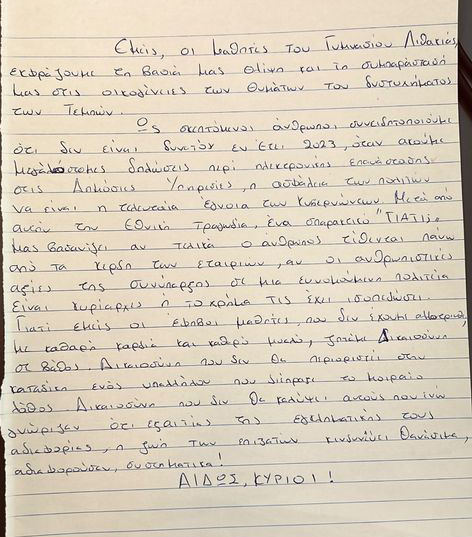 Εμείς, οι μαθητές του Γυμνασίου Λιθακιάς,
εκφράζουμε τη βαθιά μας θλίψη και τη συμπαράστασή
μας στις οικογένειες των θυμάτων του δυστυχήματος
των Τεμπών.
Ως σκεπτόμενοι άνθρωποι συνειδητοποιούμε
ότι δεν είναι δυνατόν εν έτει 2023, όταν ακούμε
μεγαλόστομες δηλώσεις περί ηλεκτρονικής επανάστασης
στις Δημόσιες Υπηρεσίες, η ασφάλεια των πολιτών
να είναι η τελευταία έγνοια των Κυβερνώντων. Μετά από
αυτήν την Εθνική Τραγωδία, ένα σπαρακτικό "ΓΙΑΤΙ;"
μας βασανίζει αν τελικά ο άνθρωπος τίθεται πάνω
από τα κέρδη των εταιριών, αν οι ανθρωπιστικές
αξίες της συνύπαρξης σε μια ευνομούμενη πολιτεία
είναι κυρίαρχες ή το χρήμα τις έχει ισοπεδώσει.
Γιατί εμείς οι έφηβοι μαθητές, που δεν έχουμε
με καθαρή καρδιά και καθαρό μυαλό, ζητάμε Δικαιοσύνη
σε βάθος. Δικαιοσύνη που δεν θα περιοριστεί στην
καταδίκη ενός υπαλλήλου που διέπραξε το μοιραίο
λάθος. Δικαιοσύνη που δεν θα καλύψει αυτούς που ενώ
γνώριζαν ότι εξαιτίας της εγκληματικής τους
αδιαφορίας, η ζωή των επιβατών κινδυνεύει θανάσιμα,
αδιαφορούσαν, συστηματικά!
ΑΙΔΩΣ, ΚΥΡΙΟΙ!